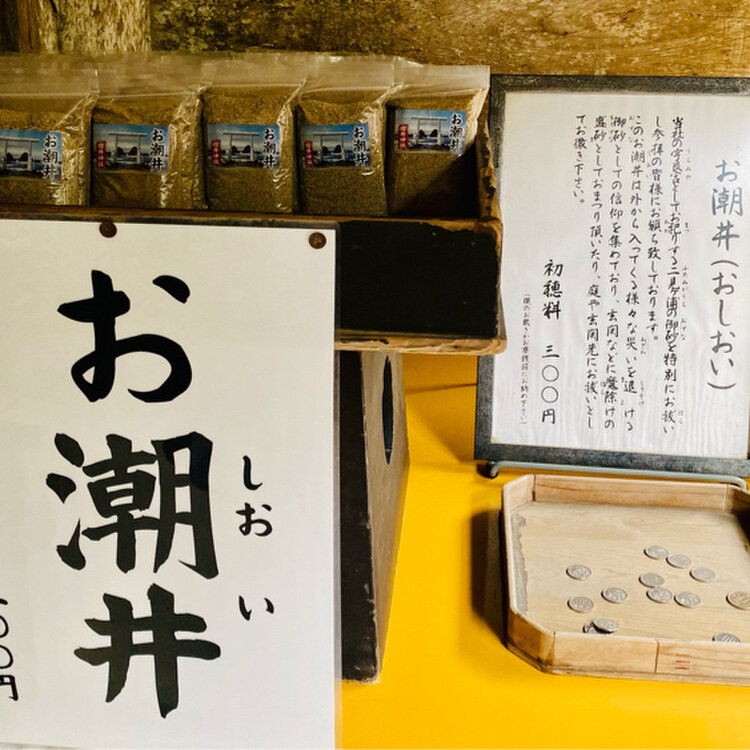 お潮井
お潮井
お潮井
お潮井
お潮井
お潮井(おしおい)
当社の宇良宮としてお祀りする二見ヶ浦の御砂を特別にお祓い
し参拝の皆様にお頒ち致しております。
このお潮井は外から入ってくる様々な災いを退ける
御砂としての信仰を集めており、玄関などに魔除けの
盛砂としておまつり頂いたり、庭や玄関先にお祓いとし
てお撒き下さい。
初穂料 三〇〇円
(横のお敷きかお賽銭箱にお納め下さい)
しおい
お潮井
〇〇円